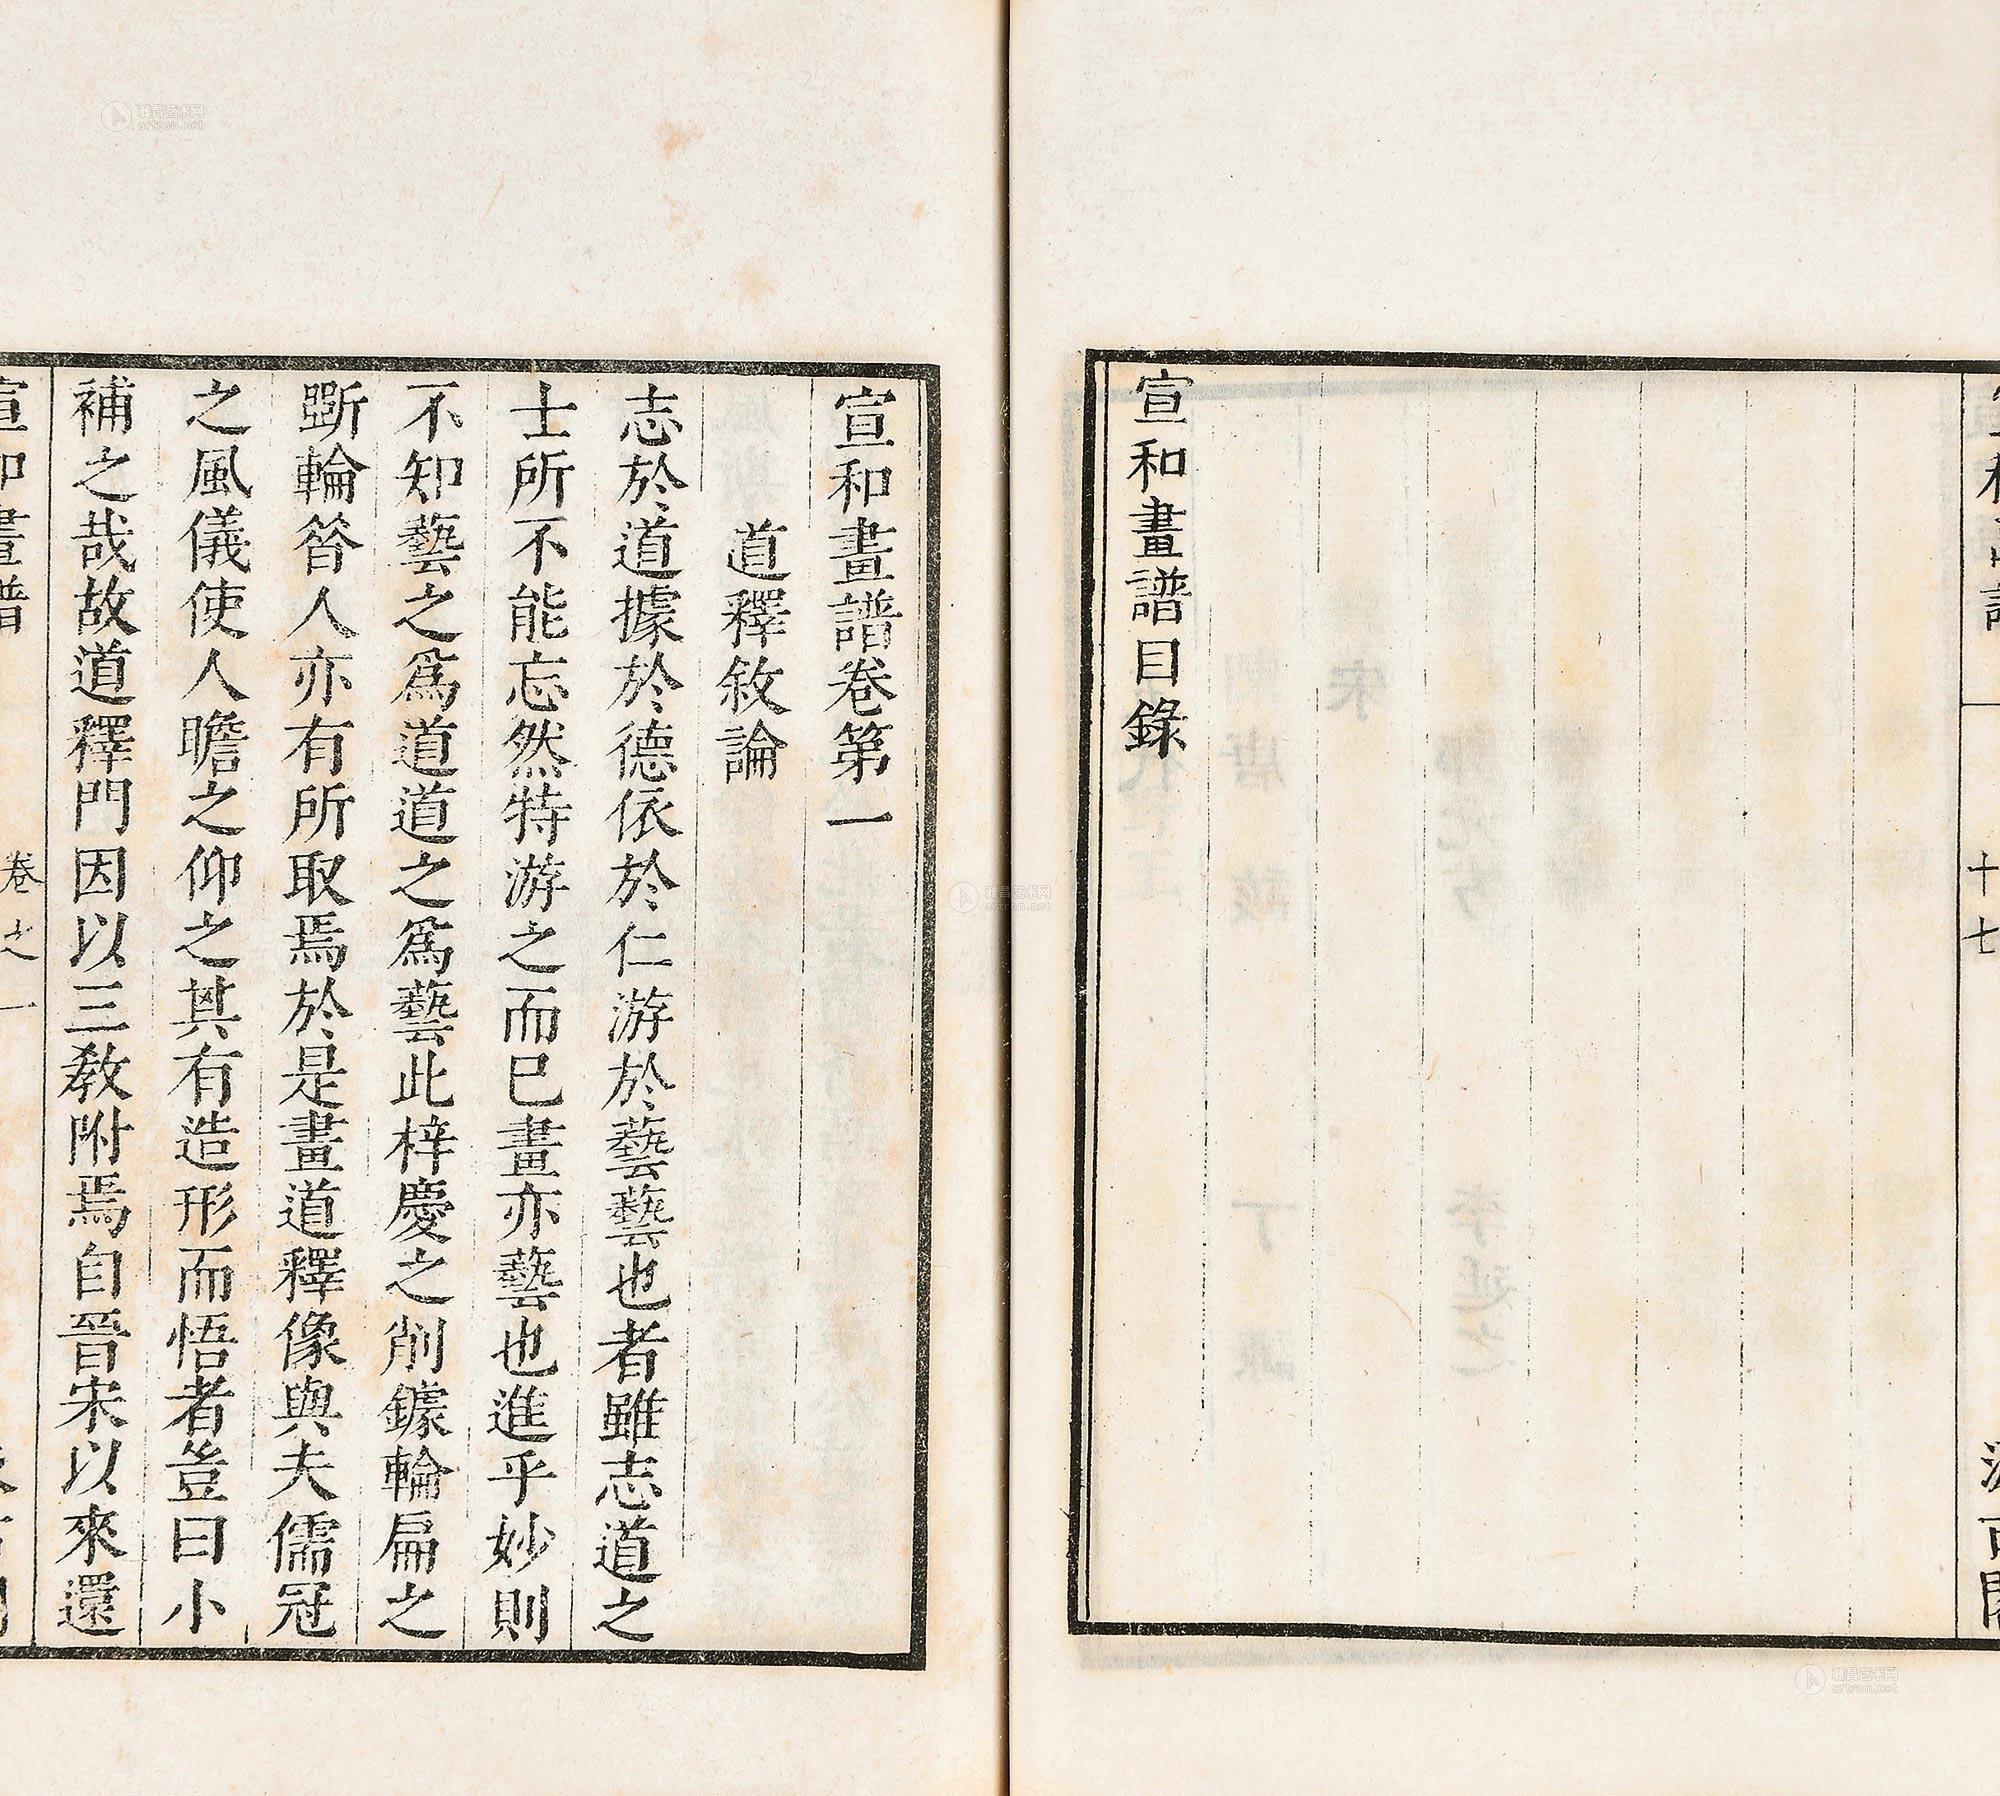 十七
宣和畫譜目錄
宣和畫譜卷第一
道釋敘論
志於道據於德依於仁游於藝藝也者雖志道之
士所不能忘然特游之而已畫亦藝也進乎妙則
不知藝之爲道道之爲藝此梓慶之削鐻輪扁之
斲輪昝人亦有所取焉於是畫道釋像與夫儒冠
之風儀使人瞻之仰之其有造形而悟者豈曰小
補之哉故道釋門因以三教附焉自晉宋以來還
宣和畫譜 卷之一
雅昌艺术网
artron.net